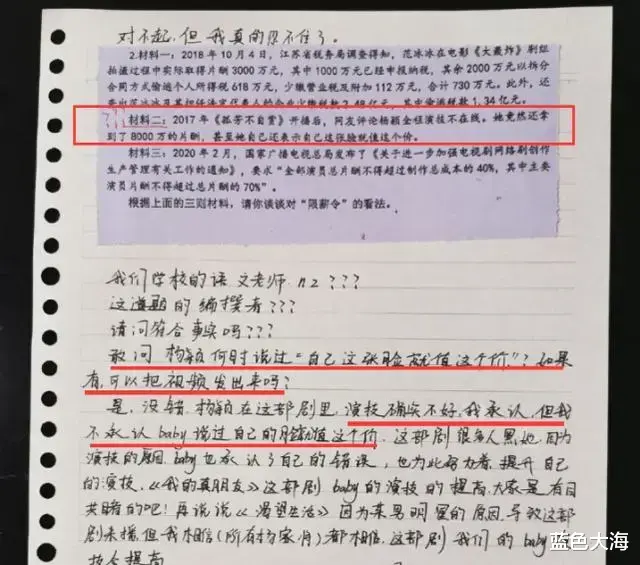 对不起,但我真的忍不住了.
2.材料一：2018年10月4日，江苏省税务局调查得知，范冰冰在电影《大轰炸》剧组
拍摄过程中实际取得片酬3000万元，其中1000万元已经申报纳税，其余2000万元以拆分
合同方式偷逃个人所得税618万元，少缴营业税及附加112万元，合计730万元。此外，还
查出范冰冰及其担任法定代表人的企业少缴税款2.48亿元，其中偷逃税款1.34亿元。
???材料二：2017年《孤芳不自赏》开播后，网友评论杨颖全程演技不在线。她竟然还拿
到了8000万的片酬，甚至她自己还表示自己这张脸就值这个价。
材料三：2020年2月，国家广播电视总局发布了《关于进一步加强电视剧网络剧创作
生产管理有关工作的通知》，要求“全部演员总片酬不得超过制作总成本的40%，其中主要
演员片酬不得超过总片酬的70%”。
根据上面的三则材料，请你谈谈对“限薪令”的看法。
我们学校的语文老师 n2 ???
这道题的编撰者???
请问符合事实吗???
敢问 杨颖何时说过“自己这张脸就值这个价”? 如果
有,可以把视频发出来吗?
是,没错.杨颖在这部剧里,演技确实不好,我承认,但我
不承认baby说过自己的脸值这个价.这部剧很多人黑她,因为
演技的原因.baby也承认了自己的错误,也为此努力着,提升自己
的演技,《我的真朋友》这部剧baby的演技的提高,大家是有目
共睹的吧!再说说《渴望生活》因为某男明星的原因,导致这部
剧未播,但我相信(所有杨家月)都相信,这部剧我们的baby
技会提高
蓝色大海